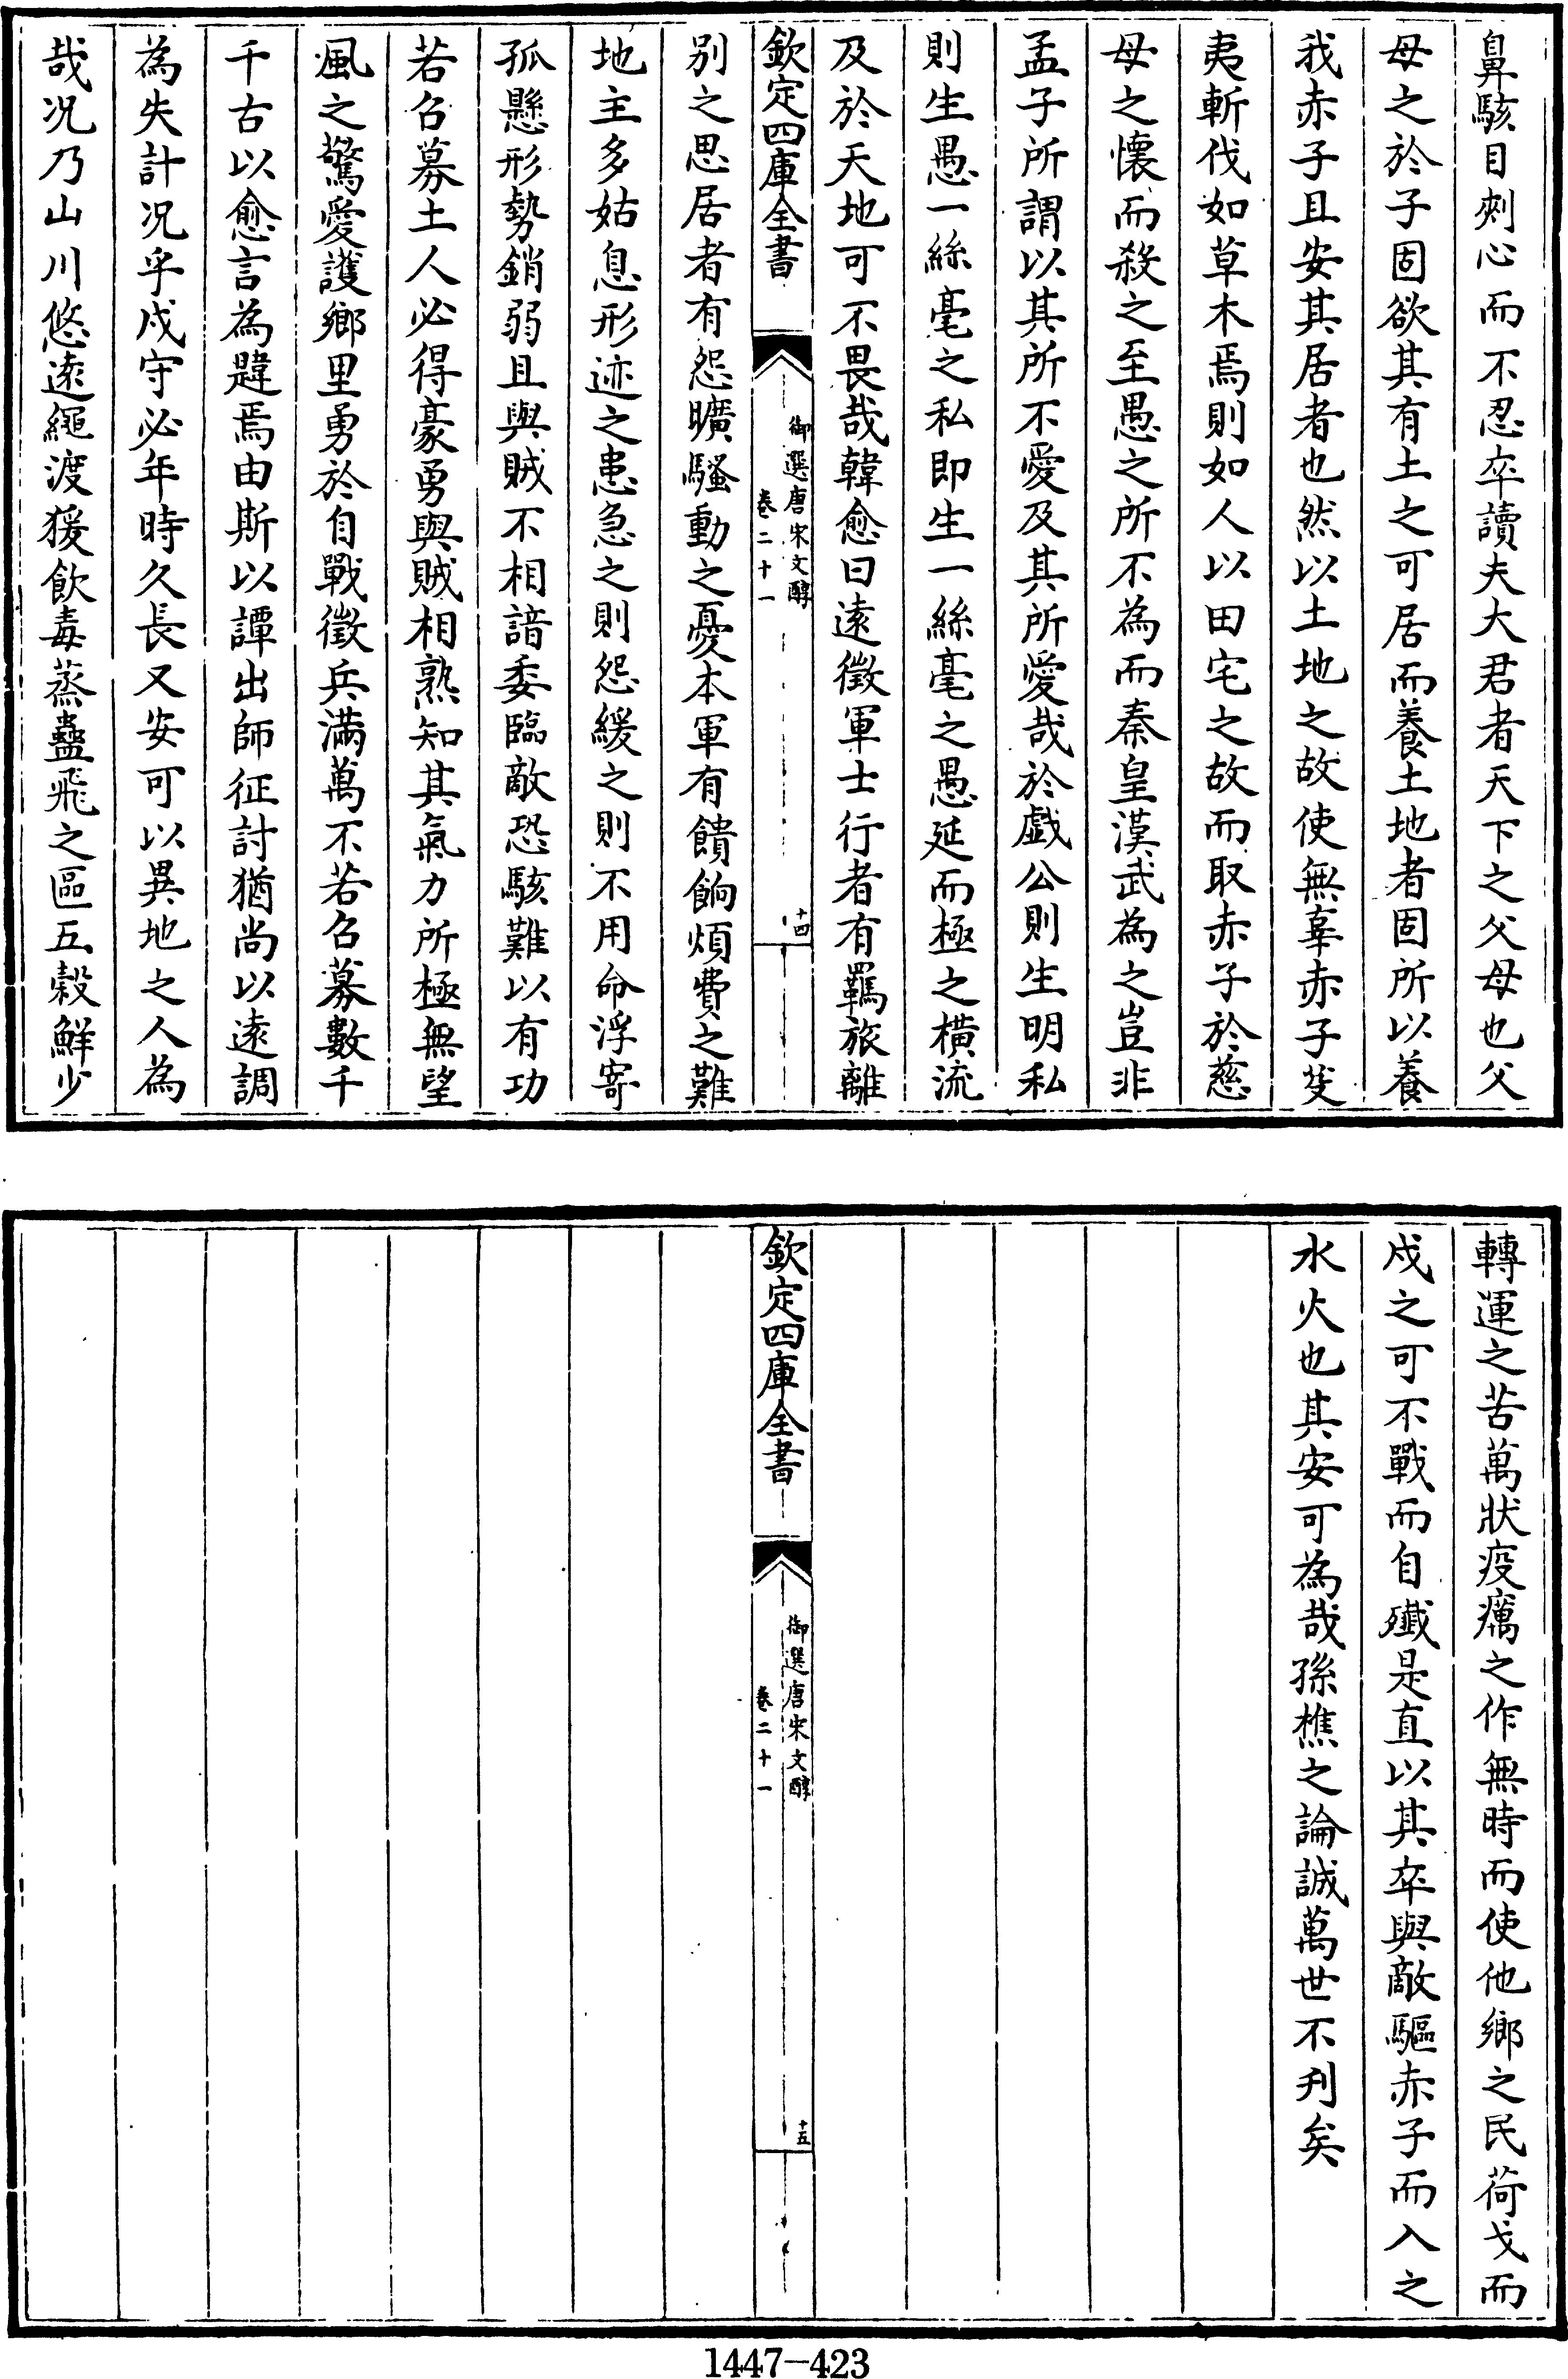 鼻駭目剡心而不忍卒讀夫大君者天下之父母也父
母之於子固欲其有土之可居而養土地者固所以養
我赤子且安其居者也然以土地之故使無辜赤子芟
夷斬伐如草木焉則如人以田宅之故而取赤子於慈
母之懷而殺之至愚之所不為而秦皇漢武為之豈非
孟子所謂以其所不愛及其所愛哉於戲公則生明私
則生愚一絲毫之私即生一絲毫之愚延而極之橫流
及於天地可不畏哉韓愈曰遠徵軍士行者有羈旅離
欽定四庫全書
御選唐宋文醇
卷二十一
十四
別之思居者有怨曠騷動之憂本軍有饋餉煩費之難
地主多姑息形迹之患急之則怨緩之則不用命浮寄
孤懸形勢銷弱且與賊不相諳委臨敵恐駭難以有功
若召募土人必得豪勇與賊相熟知其氣力所極無望
風之驚愛護鄉里勇於自戰徵兵滿萬不若召募數千
千古以愈言為韙焉由斯以譚出師征討猶尚以遠調
為失計况乎戍守必年時久長又安可以異地之人為
哉况乃山川悠遠繩渡猨飲毒蒸蠱飛之區五穀鮮少
轉運之苦萬狀疫癘之作無時而使他鄉之民荷戈而
戍之可不戰而自殲是直以其卒與敵驅赤子而入之
水火也其安可為哉孫樵之論誠萬世不刋矣
欽定四庫全書
御選唐宋文醇
卷二十一
十五
1447-423